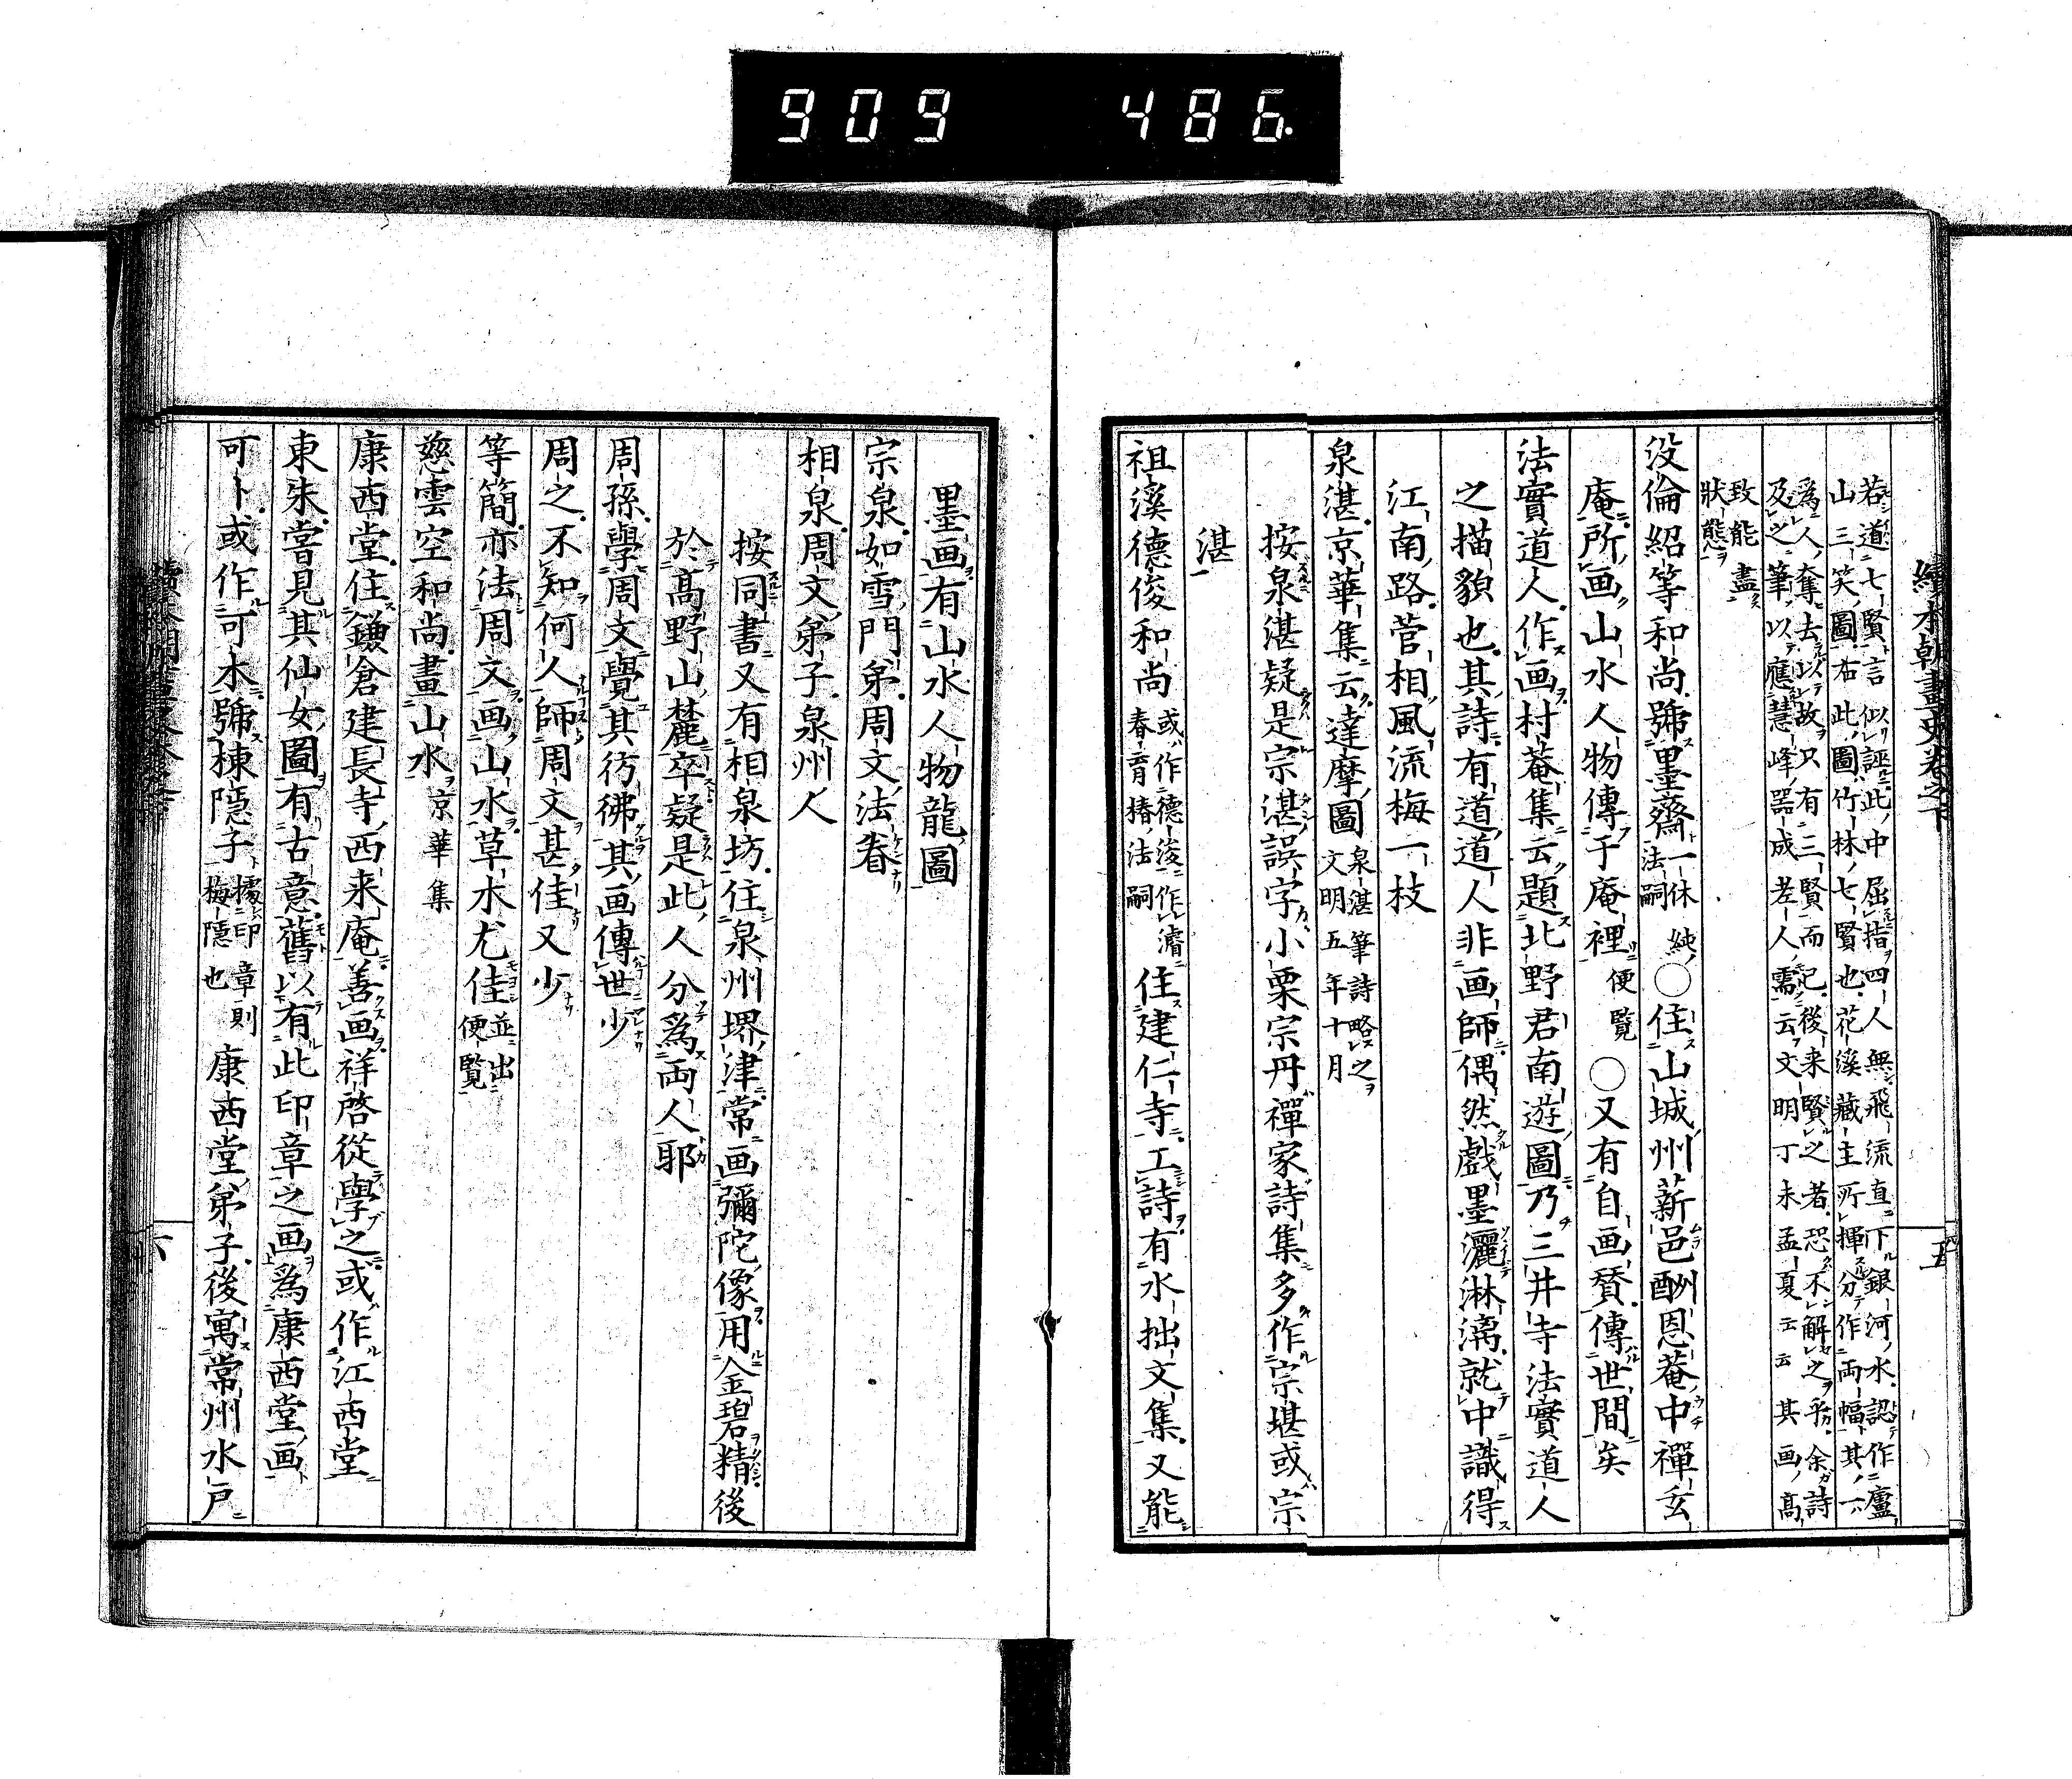 909 486
續本朝畫史卷之下
若道七賢言似誣此中屈指四人無飛流直下銀河水認作廬
山三笑圖右此圖竹林七賢也花溪藏主所揮分作両幅其一
為人奪去以故只有三賢而已後来賢之者恐不解之乎余詩
及之筆以應慧峰器成老人需云文明丁未孟夏云云其画高
致能盡
狀態
没倫紹等和尚號墨齋一休純法嗣○住山城州薪邑酬恩菴中禪玄
庵所画山水人物傳于庵裡便覧○又有自画賛傳世間矣
法實道人作画村菴集云題北野君南遊圖乃三井寺法實道人
之描貌也其詩有道道人非画師偶然戲墨灑淋漓就中識得
江南路菅相風流梅一枝
泉湛京華集云達摩圖泉湛筆詩略之文明五年十月
按泉湛疑是宗湛誤字小栗宗丹禪家詩集多作宗堪或宗
湛
祖溪德俊和尚或作德浚作濬春育椿法嗣住建仁寺工詩有水拙文集又能
墨画有山水人物龍圖
宗泉如雪門弟周文法眷
相泉周文弟子泉州人
按同書又有相泉坊住泉州堺津常画彌陀像用金碧精後
於高野山麓卒疑是此人分為両人耶
周孫學周文覺其彷彿其画傳世少
周之不知何人師周文甚佳又少
等簡亦法周文画山水草木尤佳並出便覧
慈雲空和尚畫山水京華集
康西堂住鎌倉建長寺西来庵善画祥啓從學之或作江西堂
東朱嘗見其仙女圖有古意舊以有此印章之画為康西堂画
可卜或作可木號棟隠子據印章則梅隠也康西堂弟子後寓常州水戸
六